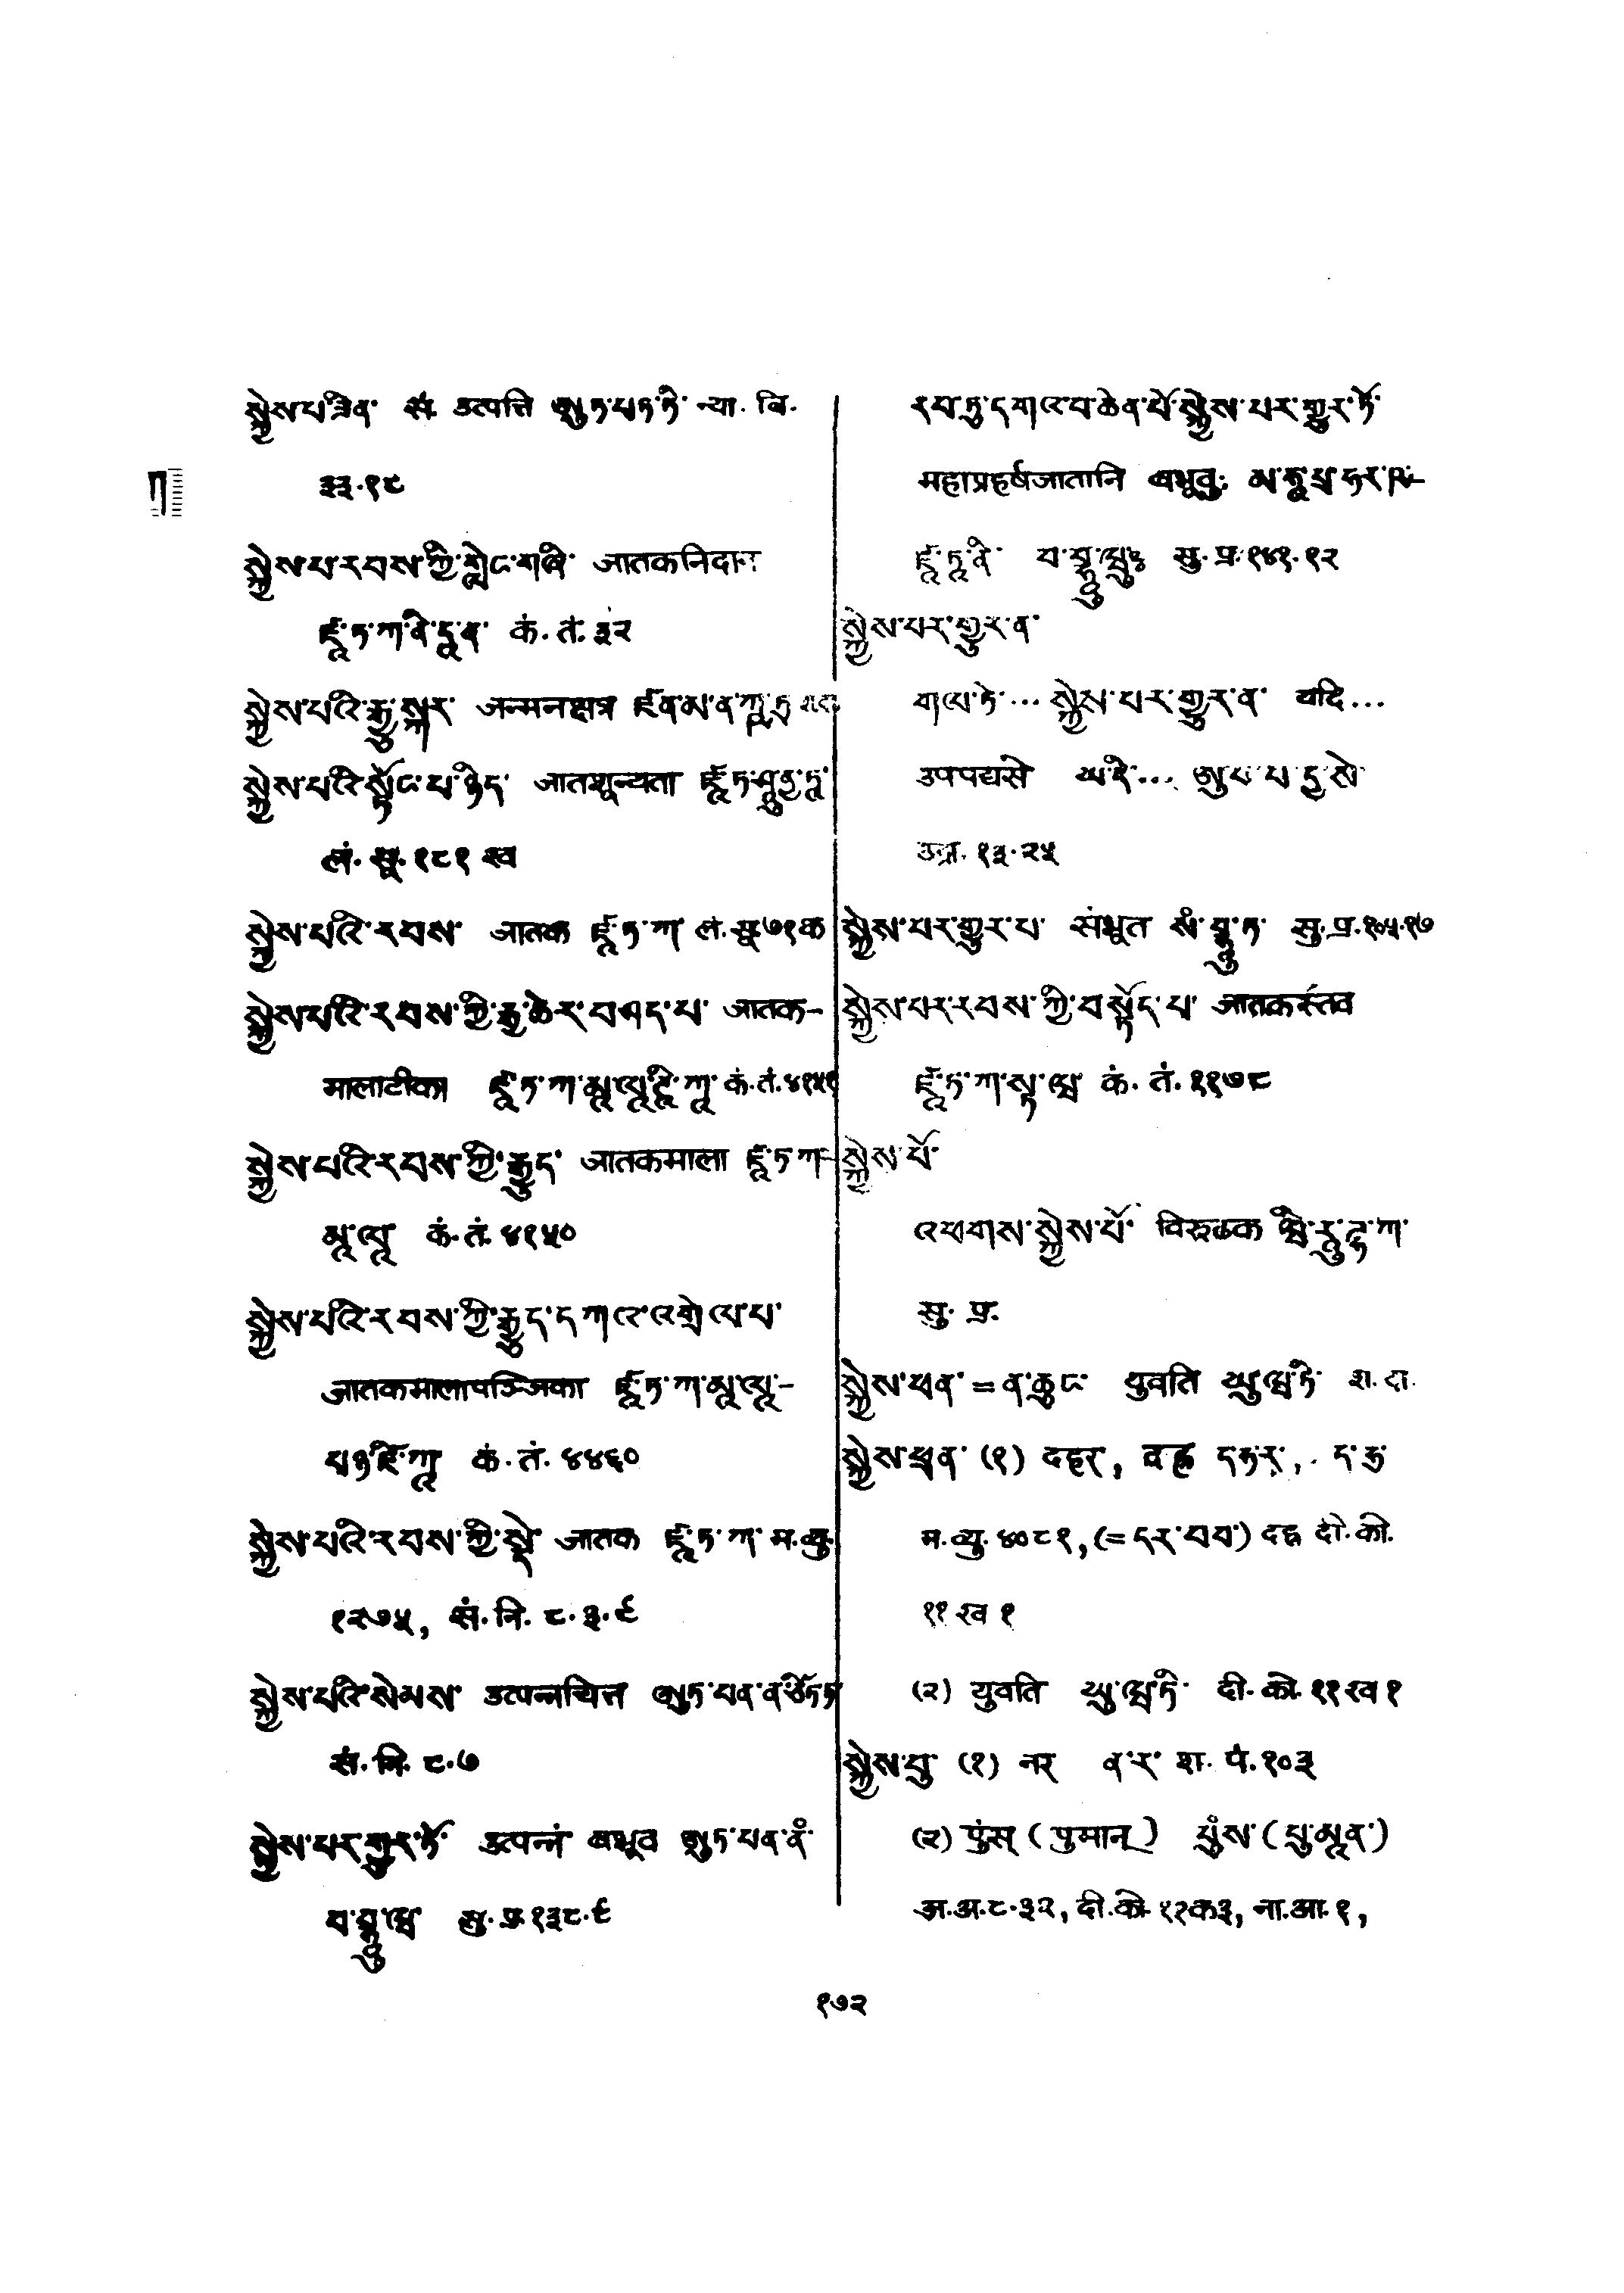 སྐྱེས་པ་ཟིན་ सं. उत्पत्ति ཨུཏ་པཏ་ཏི་ न्या. बि.
३३.१८
སྐྱེས་པ་རབས་ཀྱི་གླེང་གཞི་ जातकनिदान
ཛཱ་ཏ་ཀ་ནི་དཱ་ན་ कं. तं. ३२
སྐྱེས་པའི་རྒྱུ་སྐར་ जन्मनक्षत्र ཛན་མ་ན་ཀྵ་ཏྲ
སྐྱེས་པའི་སྟོང་པ་ཉིད་ जातशून्यता ཛཱ་ཏ་ཤཱུ་ནྱ་ཏཱ་
लं. सू. १८१ ख
སྐྱེས་པའི་རབས་ जातक ཛཱ་ཏ་ཀ་ लं. सू. ७१क
སྐྱེས་པའི་རབས་ཀྱི་རྒྱ་ཆེར་བཤད་པ་ जातक-
मालाटीका ཛཱ་ཏ་ཀ་མཱ་ལཱ་ཊཱི་ཀཱ་ कं. तं. ४१५१
སྐྱེས་པའི་རབས་ཀྱི་རྒྱུད་ जातकमाला ཛཱ་ཏ་ཀ-
མཱ་ལཱ་ कं. तं. ४१५०
སྐྱེས་པའི་རབས་ཀྱི་རྒྱུད་དཀའ་འགྲེལ་པ་
जातकमालापञ्जिका ཛཱ་ཏ་ཀ་མཱ་ལཱ་-
པཉྫི་ཀཱ་ कं. तं. ४४६०
སྐྱེས་པའི་རབས་ཀྱི་སྡེ་ जातक ཛཱ་ཏ་ཀ་ म. व्यु.
१२७५, सं. नि. ८.३.९
སྐྱེས་པའི་སེམས་ उत्पन्नचित्त ཨུཏ་པན་ན་ཙིཏ་ཏ
सं. नि. ८.७
སྐྱེས་པར་གྱུར་ཏོ་ उत्पन्नं बभूव ཨུཏ་པན་ནཾ་
བ་བྷཱུ་ཝ་ सु. प्र. १३८.९
རབ་ཏུ་དགའ་བ་ཆེན་པོ་སྐྱེས་པར་གྱུར་ཏོ་
महाप्रहर्षजातानि बभूवुः མ་ཧཱ་པྲ་ཧར་ཥ-
ཛཱ་ཏཱ་ནི་ བ་བྷཱུ་ཝུཿ सु. प्र. १४१.१२
སྐྱེས་པར་གྱུར་ན་
གལ་ཏེ་... སྐྱེས་པར་གྱུར་ན་ यदि...
उपपद्यसे ཡ་དི་... ཨུ་པ་པ་དྱ་སེ་
१३.२५
སྐྱེས་པར་གྱུར་པ་ संभूत སཾ་བྷཱུ་ཏ་ सु. प्र. १०५.१७
སྐྱེས་པར་རབས་ཀྱི་བསྟོད་པ་ जातकस्तव
ཛཱ་ཏ་ཀ་སྟ་ཝ कं. तं. ११७८
སྐྱེས་པོ་
འཕགས་སྐྱེས་པོ་ विरुढक ཝི་རུ་ཌྷ་ཀ་
सु. प्र.
སྐྱེས་ཕན་ = ན་ཆུང་ युवति ཡུ་ཝ་ཏི་ श. दा.
སྐྱེས་ཕྲན་ (१) दहर, दह्र ད་ཧ་ར་, ད་ཧྲ་
म. व्यु. ४०८१, (= དར་བབ་) दह्र दी. को.
११ ख १
(२) युवति ཡུ་ཝ་ཏི་ दी. को. ११ ख १
སྐྱེས་བུ་ (१) नर ན་ར་ श. पं. १०३
(२) पुंस् (पुमान्) པུཾས་ (པུ་མཱན་)
अ. अ. ८.३२, दी. को. १२क३, ना. आ. १,
१७२